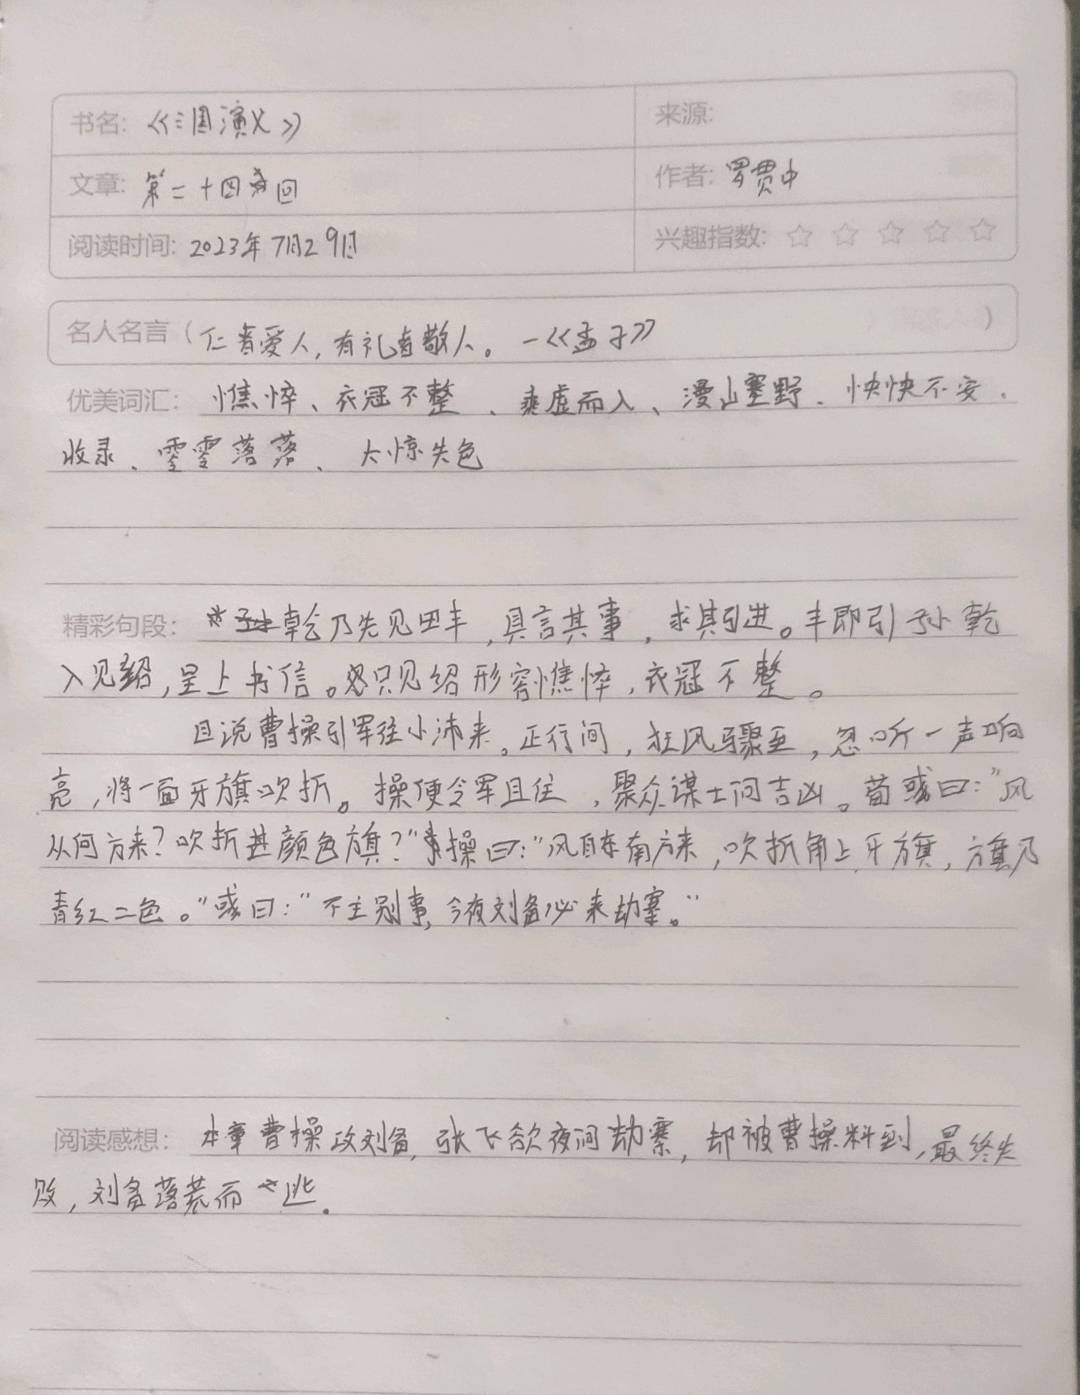 书名: 《三国演义》 来源:
文章: 第二十四回 作者: 罗贯中
阅读时间: 2023年7月29日 兴趣指数: ☆ ☆ ☆ ☆ ☆
名人名言（仁者爱人，有礼者敬人。—《孟子》）
优美词汇: 憔悴、衣冠不整、乘虚而入、漫山塞野、怏怏不安、
收录、零零落落、大惊失色
精彩句段: 乾乃先见田丰，具言其事，求其引进。丰即引孙乾
入见绍，呈上书信。只见绍形容憔悴，衣冠不整。
且说曹操引军往小沛来。正行间，狂风骤至，忽听一声响
亮，将一面牙旗吹折。操便令军且住，聚众谋士问吉凶。荀彧曰："风
从何方来？吹折甚颜色旗？"操曰："风自东南方来，吹折角上牙旗，旗乃
青红二色。"彧曰："不主别事，今夜刘备必来劫寨。"
阅读感想: 本章曹操攻刘备，张飞欲夜间劫寨，却被曹操料到，最终失
败，刘备落荒而逃。